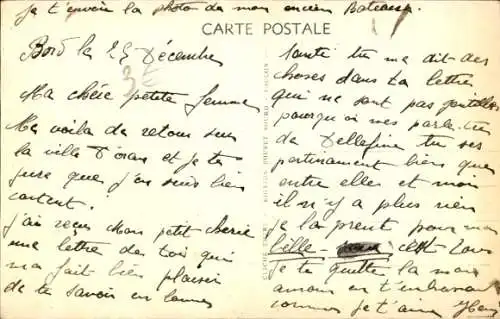 je t'envoie la photo de mon ancien Bateau
CARTE POSTALE
Bord le 25 Décembre
3€
Ma chère petite femme
Me voila de retour sur
la ville D'oran et je te
jure que j'en suis bien
content.
j'ai reçu Mon petit cherie
une lettre de toi qui
ma fait bien plaisir
de te savoir en bonne
santé tu me dit des
choses dans ta lettre
qui ne sont pas gentille
pourquoi mes parle tu
de Dellefine tu ses
pertinament bien que
entre elle et moi
il n'y a plus rien
je la prent pour ma
bélle
je te quitte la mon
amour en t'embrassant
comme je t'aime Henri